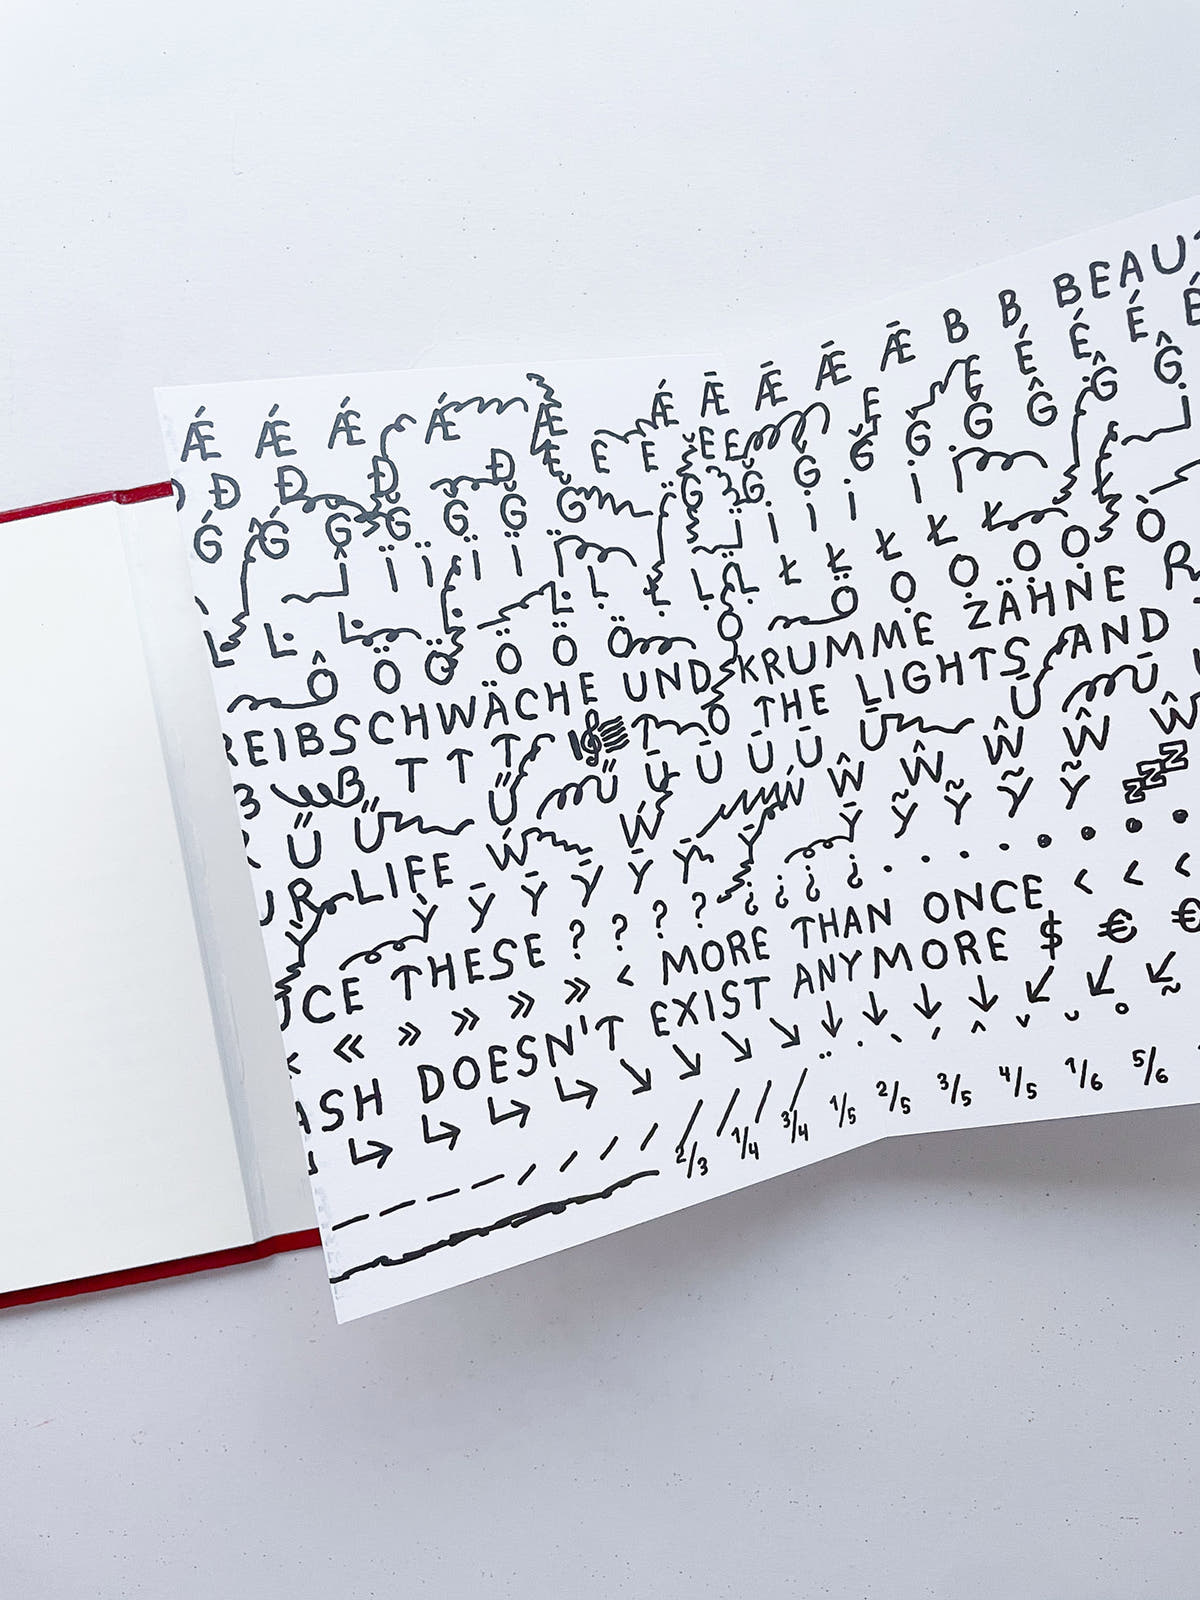 Ǽ Ǽ Ǽ Ǽ Ǽ Ǽ Ǣ Ǣ Ǣ Ǣ B B BEAU
Đ Đ Đ Đ E E E E E É É É
Ǵ Ǵ Ğ Ğ Ğ Ğ Ğ Ğ Ġ Ġ Ĝ Ĝ Ĝ
Ï Ï Ï Ï İ İ İ İ
Ŀ Ŀ Ŀ Ḷ Ḷ Ḷ Ḷ Ł Ł Ł Ł Ł
Ô Ö Ö Ö Ö Ö Ọ Ọ Ọ Ọ Ọ Ó
REIBSCHWÄCHE UND KRUMME ZÄHNE R
B T T T 𝄞 TO THE LIGHTS AND
Ű Ű Ű Ű Ū Ū Ū Ū Ū Ū Ū
UR LIFE Ẃ Ẃ Ẃ Ŵ Ŵ Ŵ Ŵ Ŵ
Ȳ Ȳ Ȳ Ȳ Ȳ Ȳ Ȳ Ȳ Ỹ Ỹ Ỹ Ỹ ZZZ
UCE THESE ? ? ? ? ¿ ¿ ¿ ¿ . . . . • • • •
« « » » » » < MORE THAN ONCE < < <
ASH DOESN'T EXIST ANYMORE $ € €
↳ ↳ ↳ ↳ ↘ ↘ ↘ ↘ ↓ ↓ ↓ ↓ ↙ ↙ ↙
— — — — / / / / / / / / ¨ ˙ ` ´ ^ ˇ ˘ ° ~
2/3 1/4 3/4 1/5 2/5 3/5 4/5 1/6 5/6